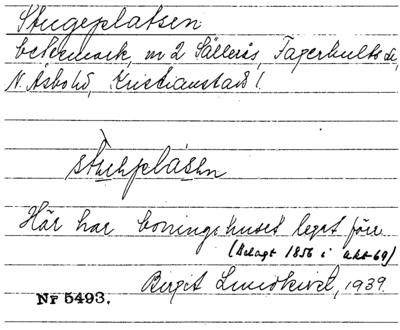 Stugeplatsen
betesmark, m 2 Sällerås, Fagerhults
N. Åsbo hd, Kristianstads l.
Här har boningshuset legat förr
(Belagt 1856 i akt 69)
Birgit Lundkvist, 1939.
Nr 5493.